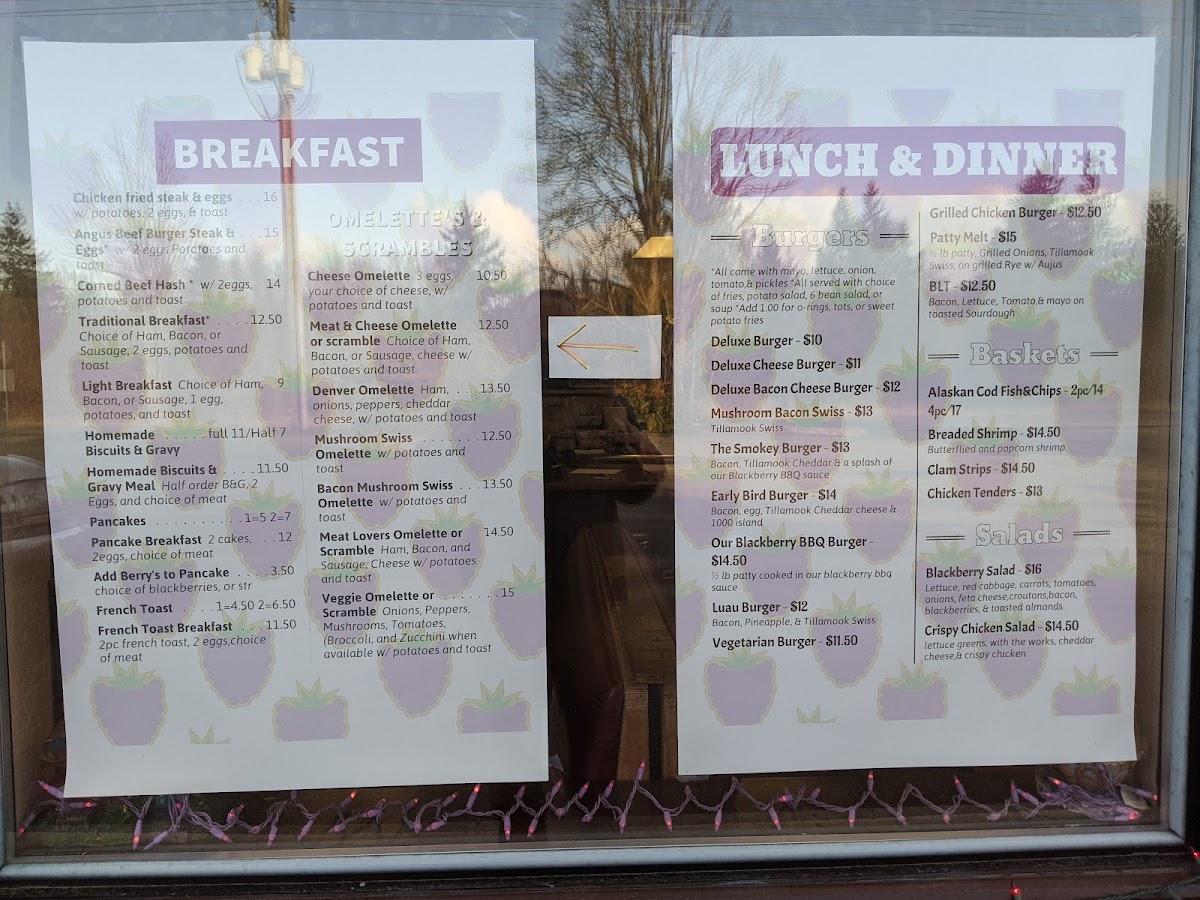 BREAKFAST
Chicken fried steak & eggs . . . 16
w/ potatoes, 2 eggs, & toast
Angus Beef Burger Steak & . . . 15
Eggs* w/ 2 eggs Potatoes and
toast
Corned Beef Hash * w/ 2eggs, 14
potatoes and toast
Traditional Breakfast* . . . . 12.50
Choice of Ham, Bacon, or
Sausage, 2 eggs, potatoes and
toast
Light Breakfast Choice of Ham, 9
Bacon, or Sausage, 1 egg,
potatoes, and toast
Homemade . . . . . full 11/Half 7
Biscuits & Gravy
Homemade Biscuits & . . . . 11.50
Gravy Meal Half order B&G, 2
Eggs, and choice of meat
Pancakes . . . . . . . . . . 1=5 2=7
Pancake Breakfast 2 cakes, . . 12
2eggs, choice of meat
Add Berry's to Pancake . . . . 3.50
choice of blackberries, or str
French Toast . . . . 1=4.50 2=6.50
French Toast Breakfast . . . 11.50
2pc french toast, 2 eggs,choice
of meat
OMELETTE'S &
SCRAMBLES
Cheese Omelette 3 eggs, 10.50
your choice of cheese, w/
potatoes and toast
Meat & Cheese Omelette 12.50
or scramble Choice of Ham,
Bacon, or Sausage, cheese w/
potatoes and toast
Denver Omelette Ham, . . . 13.50
onions, peppers, cheddar
cheese, w/ potatoes and toast
Mushroom Swiss . . . . . . . 12.50
Omelette w/ potatoes and
toast
Bacon Mushroom Swiss . . . 13.50
Omelette w/ potatoes and
toast
Meat Lovers Omelette or 14.50
Scramble Ham, Bacon, and
Sausage, Cheese w/ potatoes
and toast
Veggie Omelette or . . . . . . . 15
Scramble Onions, Peppers,
Mushrooms, Tomatoes,
(Broccoli, and Zucchini when
available w/ potatoes and toast
LUNCH & DINNER
Burgers
*All come with mayo, lettuce, onion,
tomato,& pickles *All served with choice
of fries, potato salad, 6 bean salad, or
soup *Add 1.00 for o-rings, tots, or sweet
potato fries
Deluxe Burger - $10
Deluxe Cheese Burger - $11
Deluxe Bacon Cheese Burger - $12
Mushroom Bacon Swiss - $13
Tillamook Swiss
The Smokey Burger - $13
Bacon, Tillamook Cheddar & a splash of
our Blackberry BBQ sauce
Early Bird Burger - $14
Bacon, egg, Tillamook Cheddar cheese &
1000 island
Our Blackberry BBQ Burger -
$14.50
½ lb patty cooked in our blackberry bbq
sauce
Luau Burger - $12
Bacon, Pineapple, & Tillamook Swiss
Vegetarian Burger - $11.50
Grilled Chicken Burger - $12.50
Patty Melt - $15
½ lb patty, Grilled Onions, Tillamook
Swiss, on grilled Rye w/ Aujus
BLT - $12.50
Bacon, Lettuce, Tomato,& mayo on
toasted Sourdough
Baskets
Alaskan Cod Fish&Chips - 2pc/14
4pc/17
Breaded Shrimp - $14.50
Butterflied and popcorn shrimp
Clam Strips - $14.50
Chicken Tenders - $13
Salads
Blackberry Salad - $16
Lettuce, red cabbage, carrots, tomatoes,
onions, feta cheese,croutons,bacon,
blackberries, & toasted almonds
Crispy Chicken Salad - $14.50
lettuce greens, with the works, cheddar
cheese,& crispy chicken